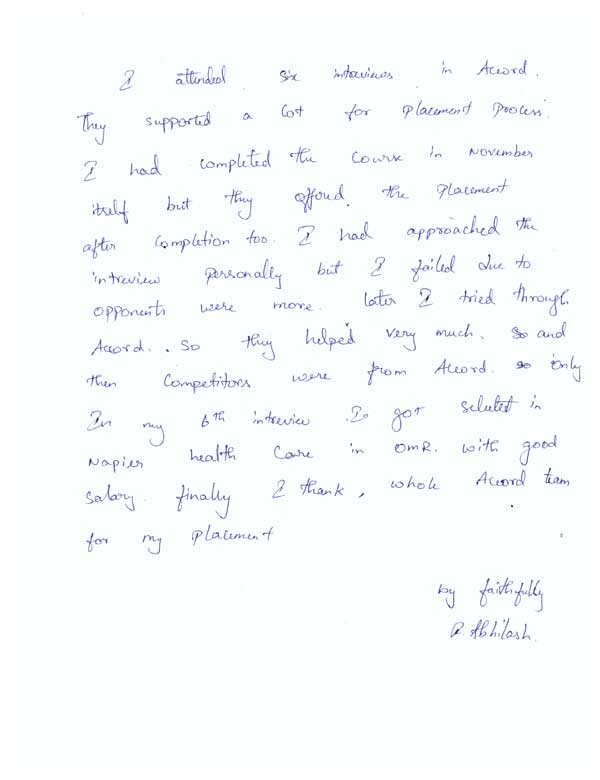 I attended six intreviews in Accord.
They supported a lot for placement process.
I had completed the course in November
itself but they offerd. the placement
after completion too. I had approached the
intreview personally but I failed due to
opponents were more. later I tried through
Accord. . So they helped very much. So and
then Competitors were from Accord. so only
In my 6th intreview I got selected in
Napier health Care in OMR. with good
salary. finally I thank, whole Accord team
for my placement
by faithfully
R. Abhilash.